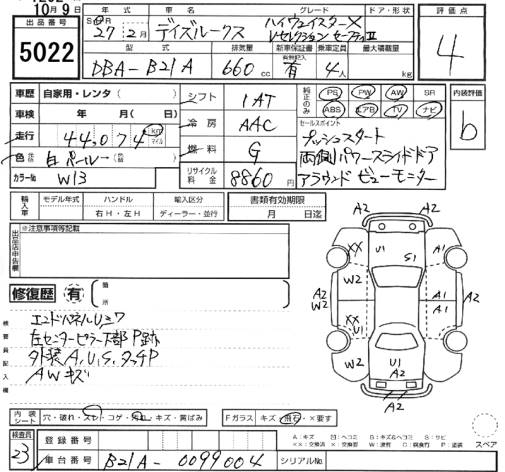 10月9日
出品番号
5022
年式 車名 グレード ドア・形状 評価点
27年2月 デイズルークス ハイウェイスターX
Vセレクション セーフティⅡ
4
型式 排気量 新車保証書 乗車定員 最大積載量
DBA-B21A 660cc 有 4人 kg
車歴 自家用・レンタ( )
車検 年 月( 日)
走行 44,074 km マイル
色 白パール
カラーNo. W13
シフト 1AT
冷房 AAC
燃料 G
リサイクル料金 8860円
純正のみ PS PW AW SR
ABS エアB TV ナビ
セールスポイント
プッシュスタート
両側パワースライドドア
アラウンドビューモニター
内装評価
b
輸入車 モデル年式 ハンドル 輸入区分
年 右H・左H ディーラー・並行
書類有効期限
月 日迄
出品店申告欄
※注意事項等記載
修復歴 有 箇所
検査員記入欄
エンドパネルUヌワ
左センターピラー下部P跡
外装A,U,S,タッチP
AWキズ
A2
XX U1 S1 A1
W2 A1
A2 W2 A1 A2
XX U1
W2 U1
A2
A2
内装シート 穴・破れ・スレ・コゲ・汚れ・キズ・黄ばみ
Fガラス キズ・飛石・×要す
スペア
A:キズ U:ヘコミ B:キズ&ヘコミ S:サビ
検査員 23
登録番号
車台番号 B21A-0099004 シリアルNo.